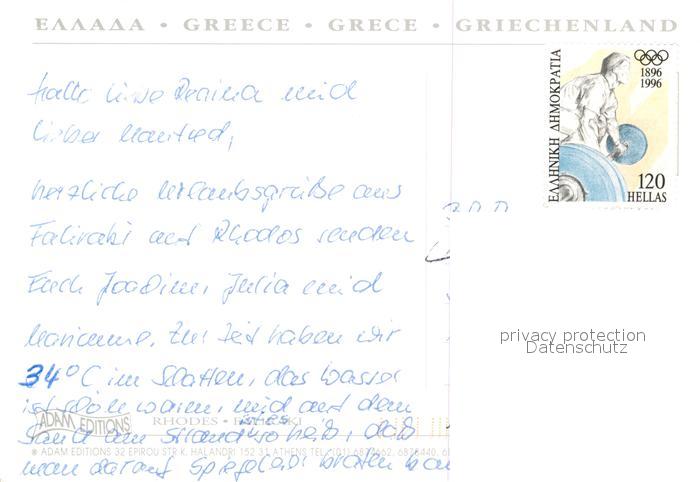 ΕΛΛΑΔΑ • GREECE • GRECE • GRIECHENLAND
ΕΛΛΗΝΙΚΗ ΔΗΜΟΚΡΑΤΙΑ
1896
1996
120
HELLAS
Hallo liebe Regina und
lieber Manfred,
herzliche Urlaubsgrüße aus
Faliraki auf Rhodos senden
Euch Joachim, Julia und
Marianne. Zur Zeit haben wir
34°C im Schatten, das Wasser
ist schön warm, und auf dem
Sand am Strand so heiß, daß
man darauf Spiegelei braten
privacy protection
Datenschutz
ADAM EDITIONS
RHODES -
ADAM EDITIONS 32 EPIROU STR K. HALANDRI 152 31 ATHENS